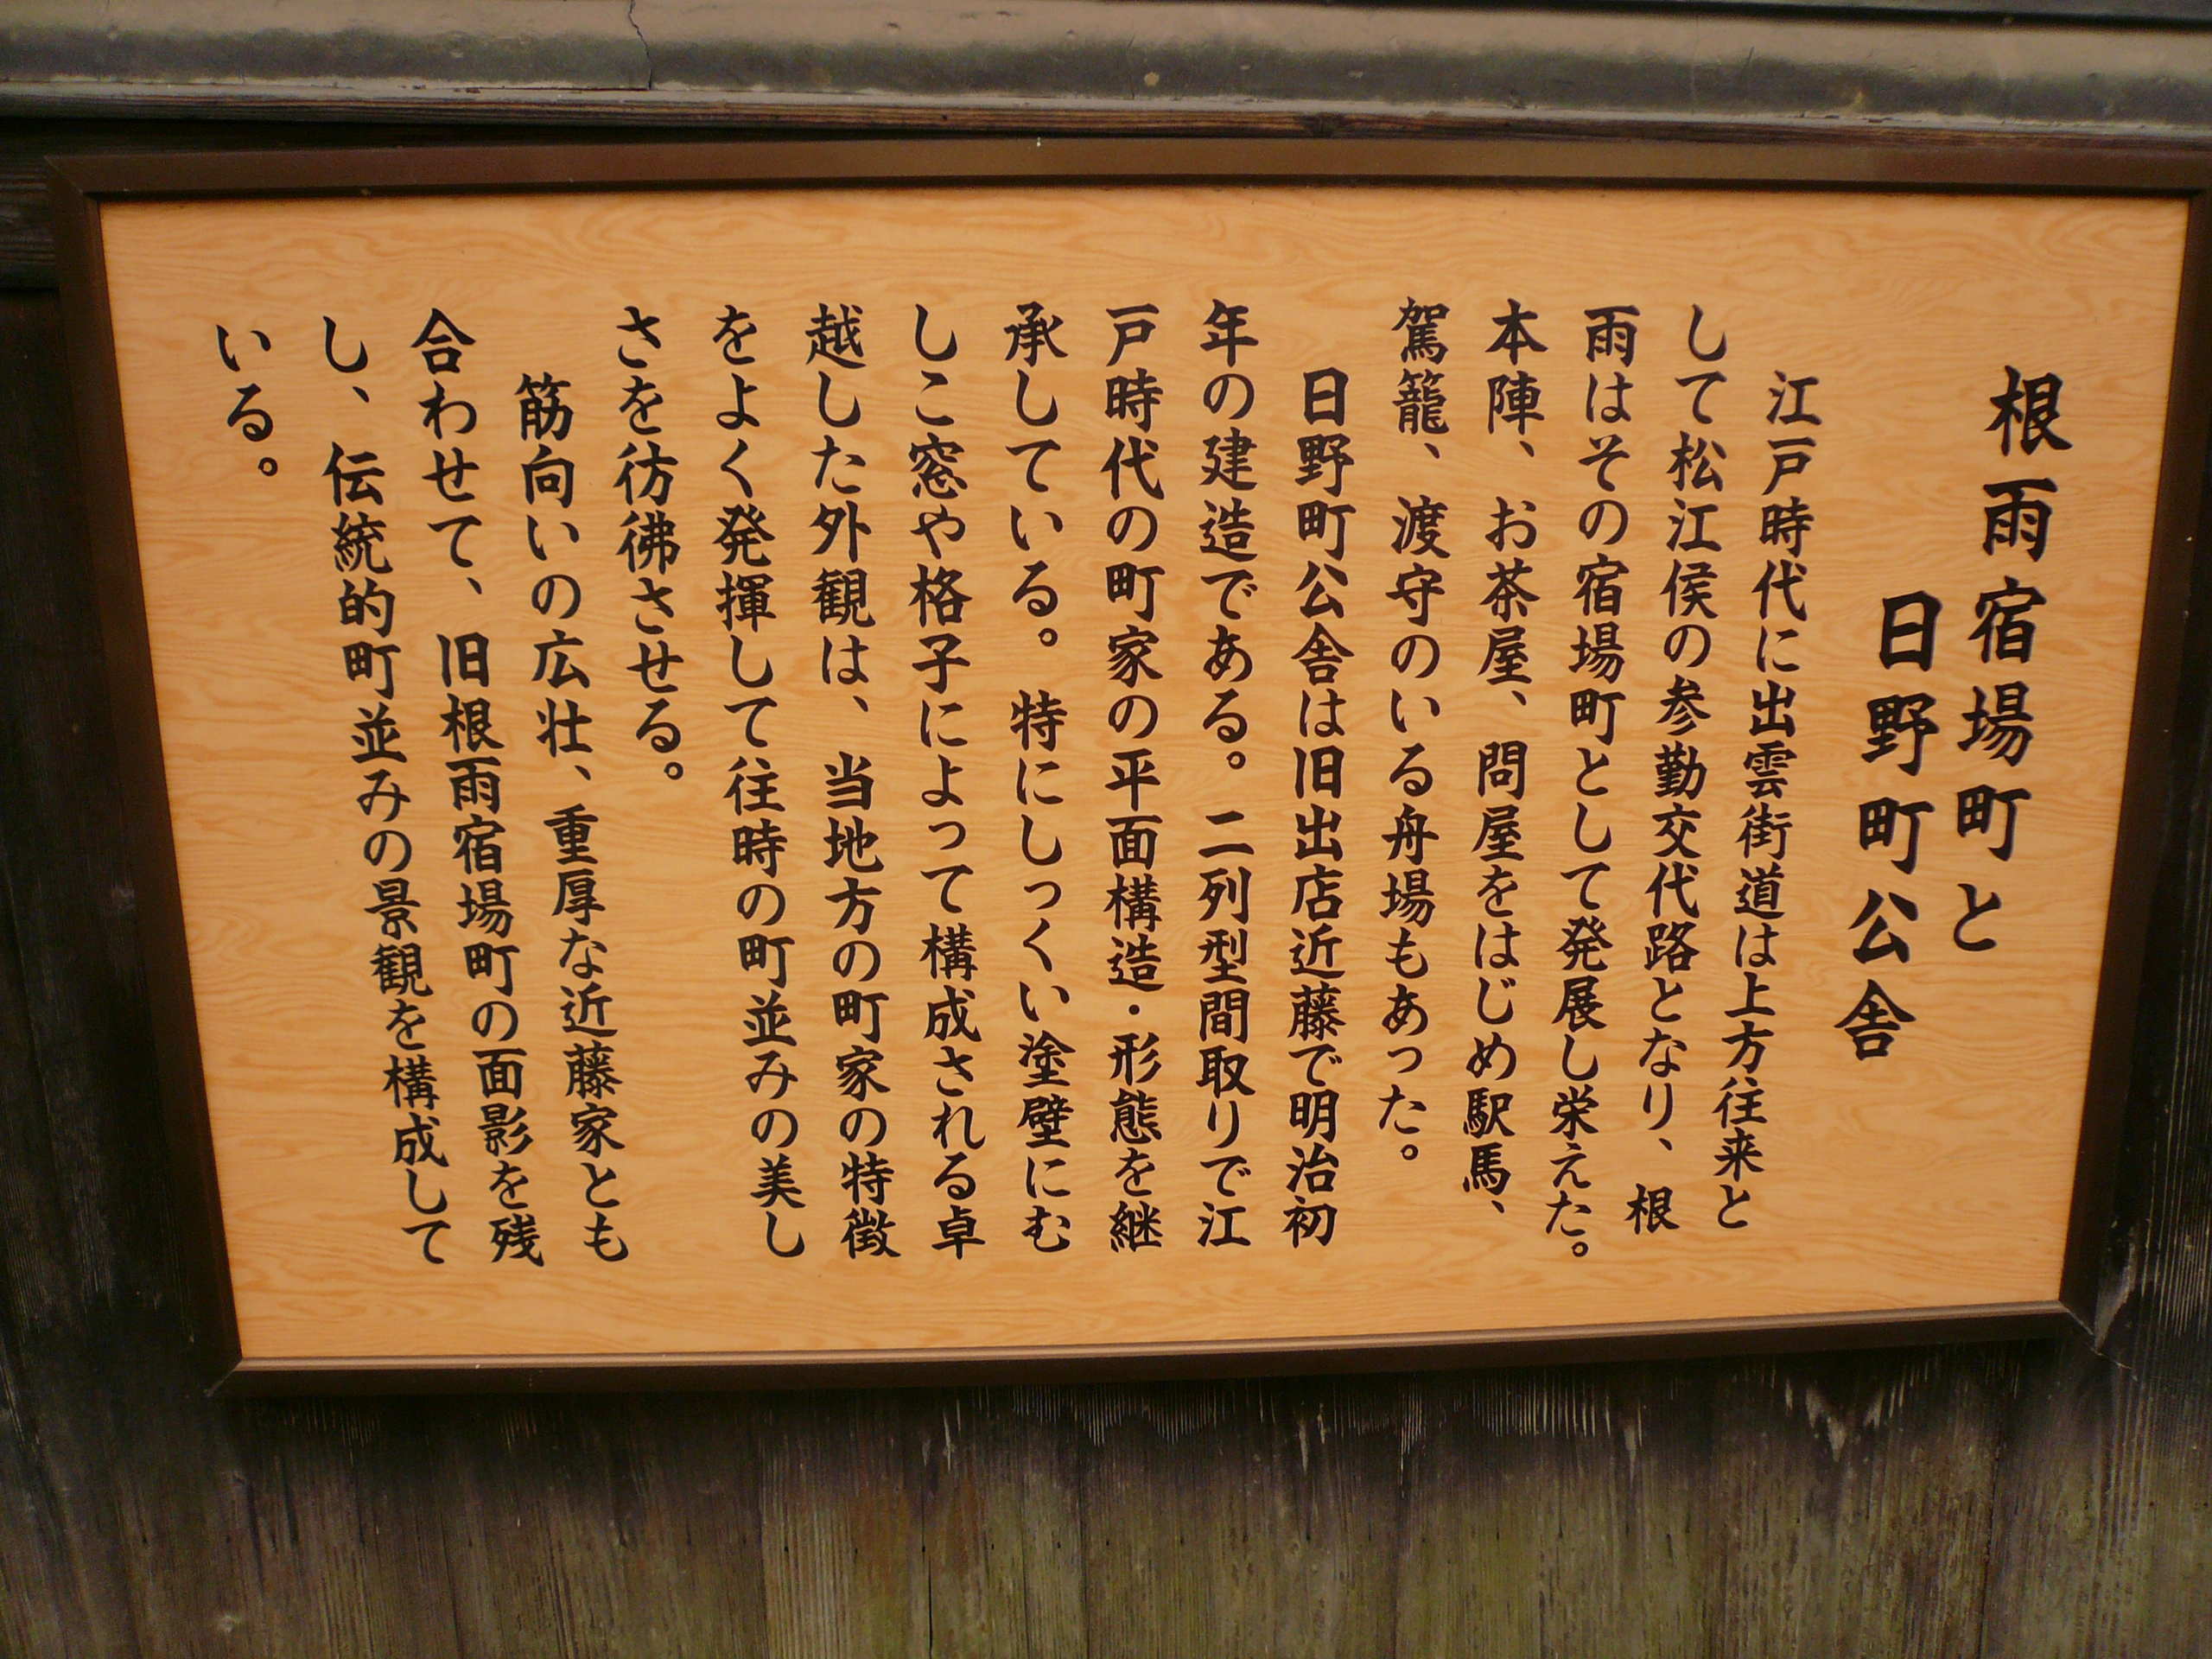 根雨宿場町と
日野町公舎
江戸時代に出雲街道は上方往来と
して松江侯の参勤交代路となり、根
雨はその宿場町として発展し栄えた。
本陣、お茶屋、問屋をはじめ駅馬、
駕籠、渡守のいる舟場もあった。
日野町公舎は旧出店近藤で明治初
年の建造である。二列型間取りで江
戸時代の町家の平面構造・形態を継
承している。特にしっくい塗壁にむ
しこ窓や格子によって構成される卓
越した外観は、当地方の町家の特徴
をよく発揮して往時の町並みの美し
さを彷彿させる。
筋向いの広壮、重厚な近藤家とも
合わせて、旧根雨宿場町の面影を残
し、伝統的町並みの景観を構成して
いる。